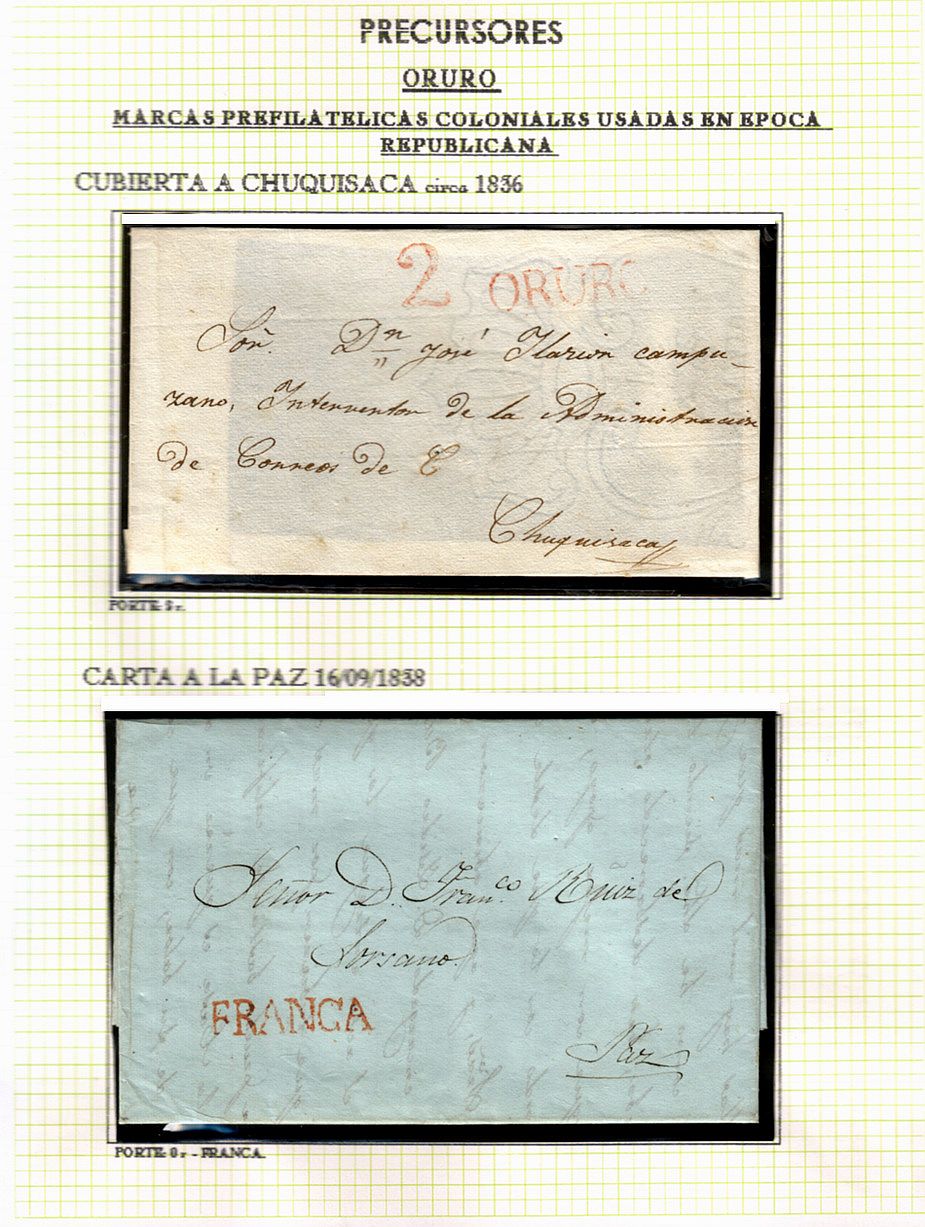 PRECURSORES
ORURO
MARCAS PREFILATELICAS COLONIALES USADAS EN EPOCA
REPUBLICANA
CUBIERTA A CHUQUISACA circa 1836
2 ORURO
Sōn. Dn José Ilarion campu-
zano, Interventor de la Administracion
de Correos de C
Chuquisaca
PORTE: r.
CARTA A LA PAZ 16/09/1838
Señor D. Franco. Ruiz de
Sorzano.
FRANCA
Paz
PORTE: 0 r - FRANCA.